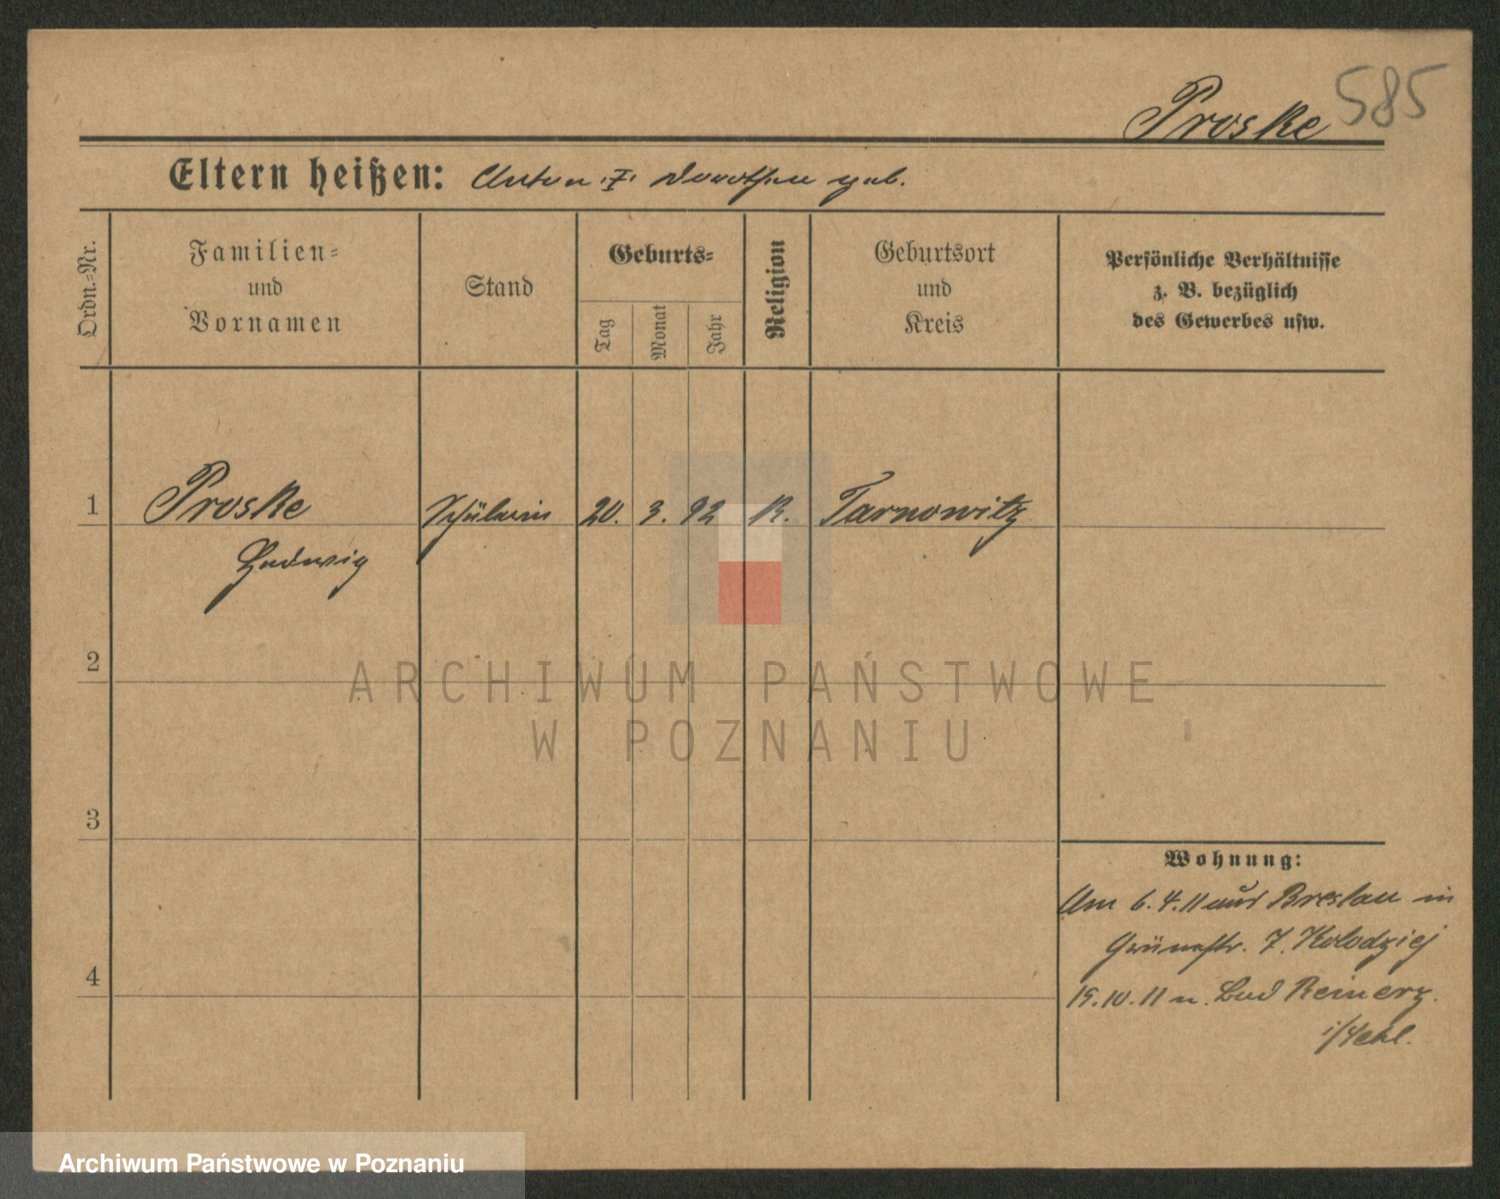 Proske 585
Eltern heißen: Anton u. Dorothea geb.
Ordn.-Nr.
Familien-
und
Vornamen
Stand
Geburts-
Tag
Monat
Jahr
Religion
Geburtsort
und
Kreis
Persönliche Verhältnisse
z. B. bezüglich
des Gewerbes usw.
1 Proske Schülerin 20. 3. 92 K. Tarnowitz
Hedwig
2
3
4
Wohnung:
Am 6.4.11 aus Breslau in
Grünestr. 7. Kolodziej
19.10.11 n. Bad Reinerz.
ARCHIWUM PAŃSTWOWE
W POZNANIU
Archiwum Państwowe w Poznaniu